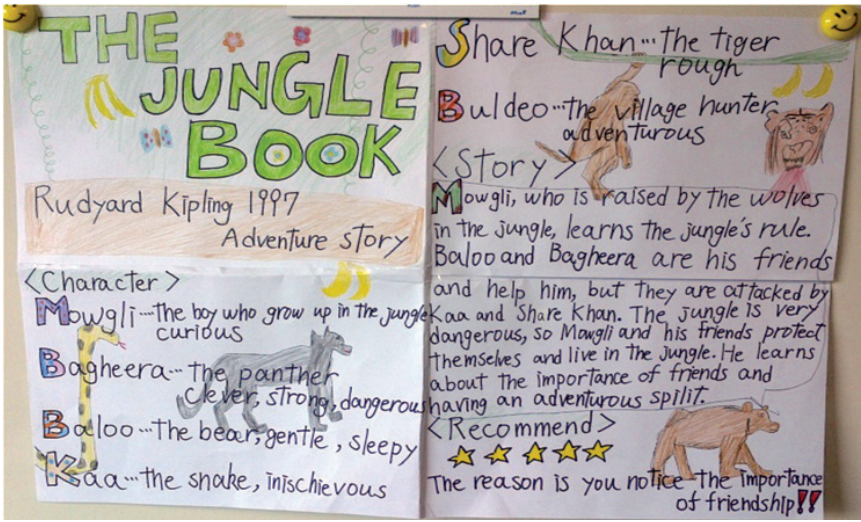 THE
JUNGLE
BOOK
Rudyard Kipling 1997
Adventure story
<Character>
Mowgli...The boy who grow up in the jungle
curious
Bagheera...the panther
clever, strong, dangerous
Baloo...the bear, gentle, sleepy
Kaa...the snake, inischievous
Share Khan...the tiger
rough
Buldeo...the village hunter
adventurous
<Story>
Mowgli, who is raised by the wolves
in the jungle, learns the jungle's rule.
Baloo and Bagheera are his friends
and help him, but they are attacked by
Kaa and Share Khan. The jungle is very
dangerous, so Mowgli and his friends protect
themselves and live in the jungle. He learns
about the importance of friends and
having an adventurous spilit.
<Recommend>
The reason is you notice the importance
of friendship!!